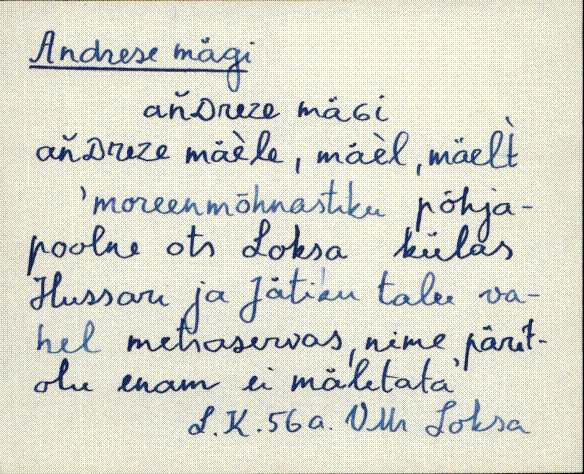 Andrese mägi
añDreze mäGi
añDreze mäèle, mäèl, mäelt̀
'moreenmõhnastiku põhja-
poolne ots Loksa külas
Hussaru ja Jätiku talu va-
hel metsaservas, nime pärit-
olu enam ei mäletata'
L.K. 56 a. VMr Loksa